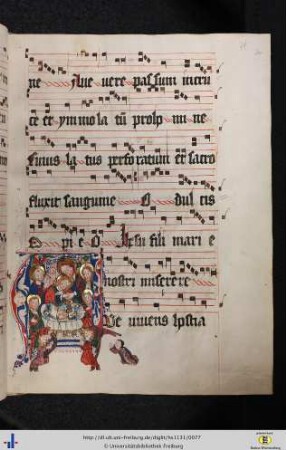 ne Aue vere passum incru
ce et ymmola tū pro hō mi ne
Cuius la tus perforatum et sacro
fluxit sanguine O dul cis
O pi e O Ihesu fili mari e
nostri miserere
Ve viuens hostia
http://dl.ub.uni-freiburg.de/diglit/hs1131/0077
© Universitätsbibliothek Freiburg